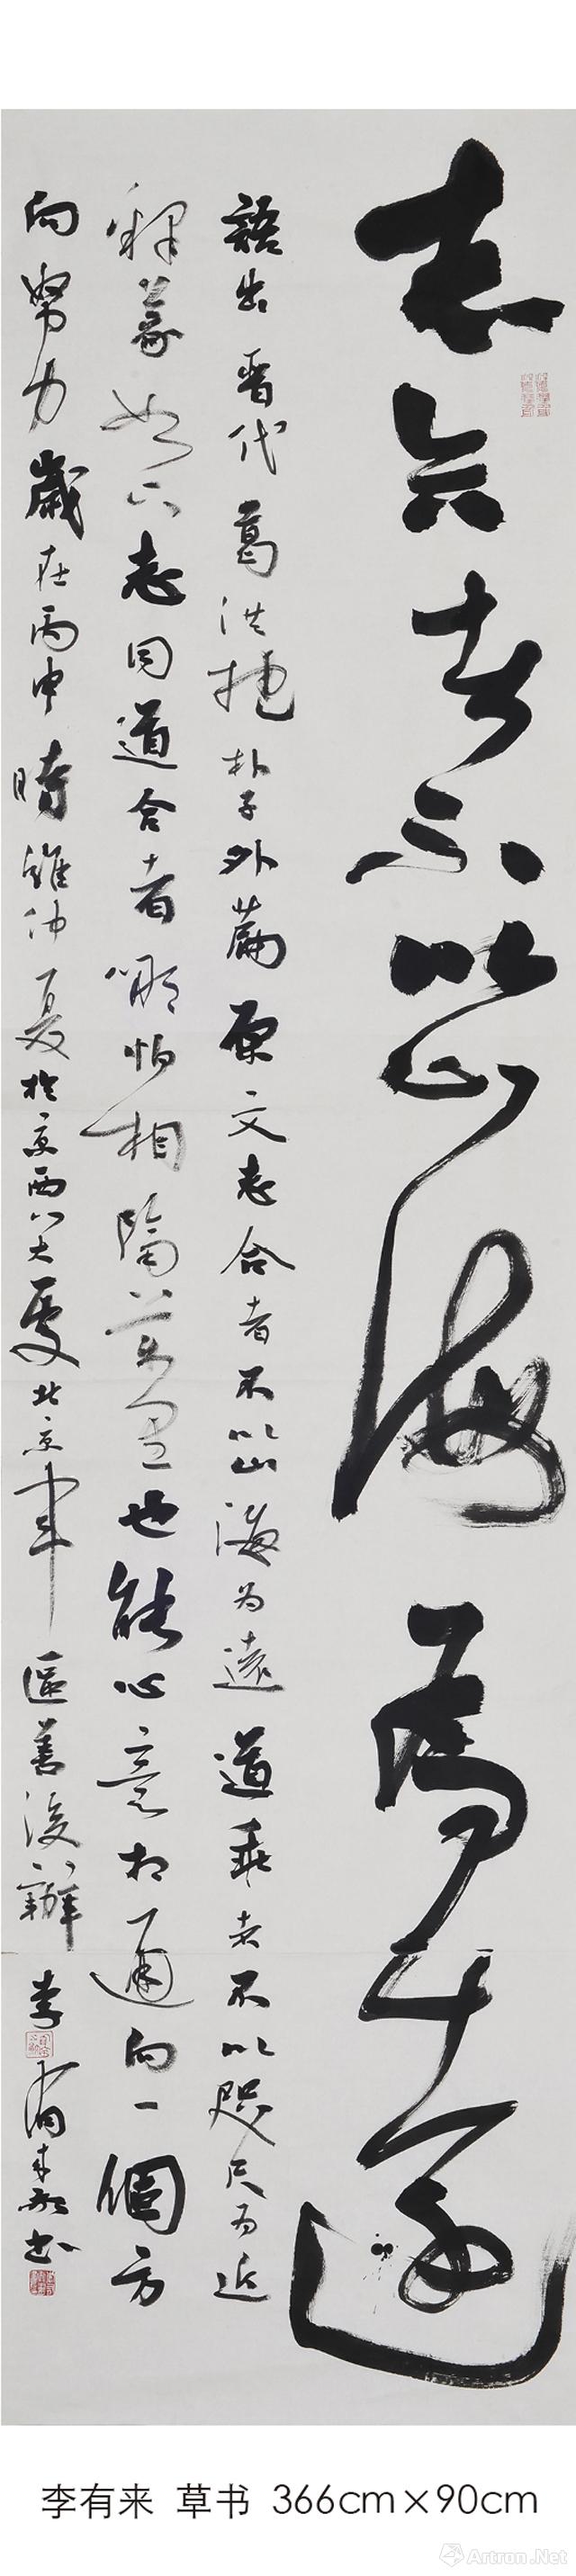 志合者不以山海為遠
語出晉代葛洪抱朴子外篇原文志合者不以山海为遠道乖者不以咫尺为近
釋義如下志同道合者哪怕相隔萬里也能心意相通向一個方
向努力歲在丙申時維仲夏於京西八大處北京軍區善後辦李有来书
李有来 草书 366cm×90cm
Artron.Net